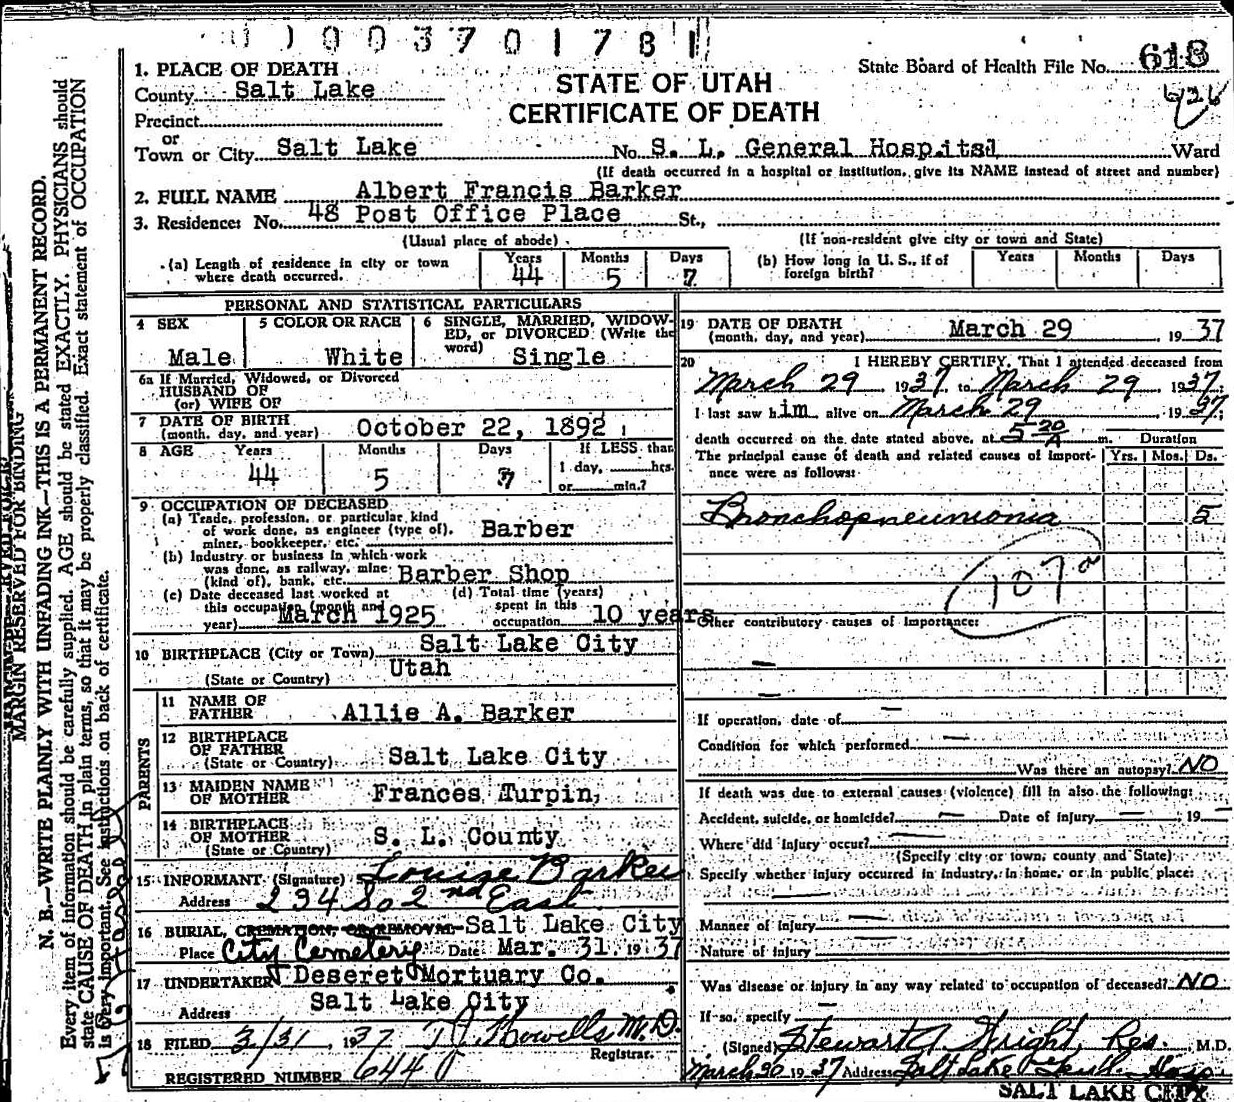 0003701781
1. PLACE OF DEATH
STATE OF UTAH
CERTIFICATE OF DEATH
State Board of Health File No. 618
626
County Salt Lake
Precinct
or
Town or City Salt Lake No. S. L. General Hospital Ward
(If death occurred in a hospital or institution, give its NAME instead of street and number)
2. FULL NAME Albert Francis Barker
3. Residence: No. 48 Post Office Place St.,
(Usual place of abode) (If non-resident give city or town and State)
(a) Length of residence in city or town where death occurred. Years 44 Months 5 Days 7
(b) How long in U. S., if of foreign birth? Years Months Days
PERSONAL AND STATISTICAL PARTICULARS
4 SEX Male
5 COLOR OR RACE White
6 SINGLE, MARRIED, WIDOWED, or DIVORCED (Write the word) Single
6a If Married, Widowed, or Divorced
HUSBAND OF
(or) WIFE OF
7 DATE OF BIRTH
(month, day, and year) October 22, 1892
8 AGE Years 44 Months 5 Days 7 If LESS than
1 day, hrs.
or min.?
9 OCCUPATION OF DECEASED
(a) Trade, profession, or particular kind
of work done, as engineer (type of),
miner, bookkeeper, etc. Barber
(b) Industry or business in which work
was done, as railway, mine
(kind of), bank, etc. Barber Shop
(c) Date deceased last worked at
this occupation (month and
year) March 1925
(d) Total time (years)
spent in this
occupation 10 years
10 BIRTHPLACE (City or Town) Salt Lake City
(State or Country) Utah
PARENTS
11 NAME OF
FATHER Allie A. Barker
12 BIRTHPLACE
OF FATHER
(State or Country) Salt Lake City
13 MAIDEN NAME
OF MOTHER Frances Turpin,
14 BIRTHPLACE
OF MOTHER
(State or Country) S. L. County
15 INFORMANT (Signature) Louise Barker
Address 234 So 2nd East
16 BURIAL, CREMATION, OR REMOVAL Salt Lake City
Place City Cemetery Date Mar. 31 1937
17 UNDERTAKER Deseret Mortuary Co.
Address Salt Lake City
18 FILED 3/31, 1937 T J Howells M.D.
Registrar.
REGISTERED NUMBER 644
19 DATE OF DEATH
(month, day, and year) March 29, 1937
20 I HEREBY CERTIFY, That I attended deceased from
March 29, 1937 to March 29, 1937
I last saw him alive on March 29 1937;
death occurred on the date stated above, at 5 20/A m.
The principal cause of death and related causes of importance were as follows: Duration Yrs. Mos. Ds.
Bronchopneumonia 5
107a
Other contributory causes of importance:
If operation, date of —
Condition for which performed —
Was there an autopsy? NO
If death was due to external causes (violence) fill in also the following:
Accident, suicide, or homicide? — Date of injury — , 19 —
Where did injury occur? —
(Specify city or town, county and State)
Specify whether injury occurred in industry, in home, or in public place:
Manner of injury —
Nature of injury —
Was disease or injury in any way related to occupation of deceased? NO
If so, specify —
(Signed) Stewart A Wright, Res. M.D.
March 30 1937 Address Salt Lake Genl. Hosp
SALT LAKE CITY
MARGIN RESERVED FOR BINDING
N. B.—WRITE PLAINLY WITH UNFADING INK—THIS IS A PERMANENT RECORD.
Every item of information should be carefully supplied. AGE should be stated EXACTLY. PHYSICIANS should
state CAUSE OF DEATH in plain terms, so that it may be properly classified. Exact statement of OCCUPATION
is very important. See instructions on back of certificate.